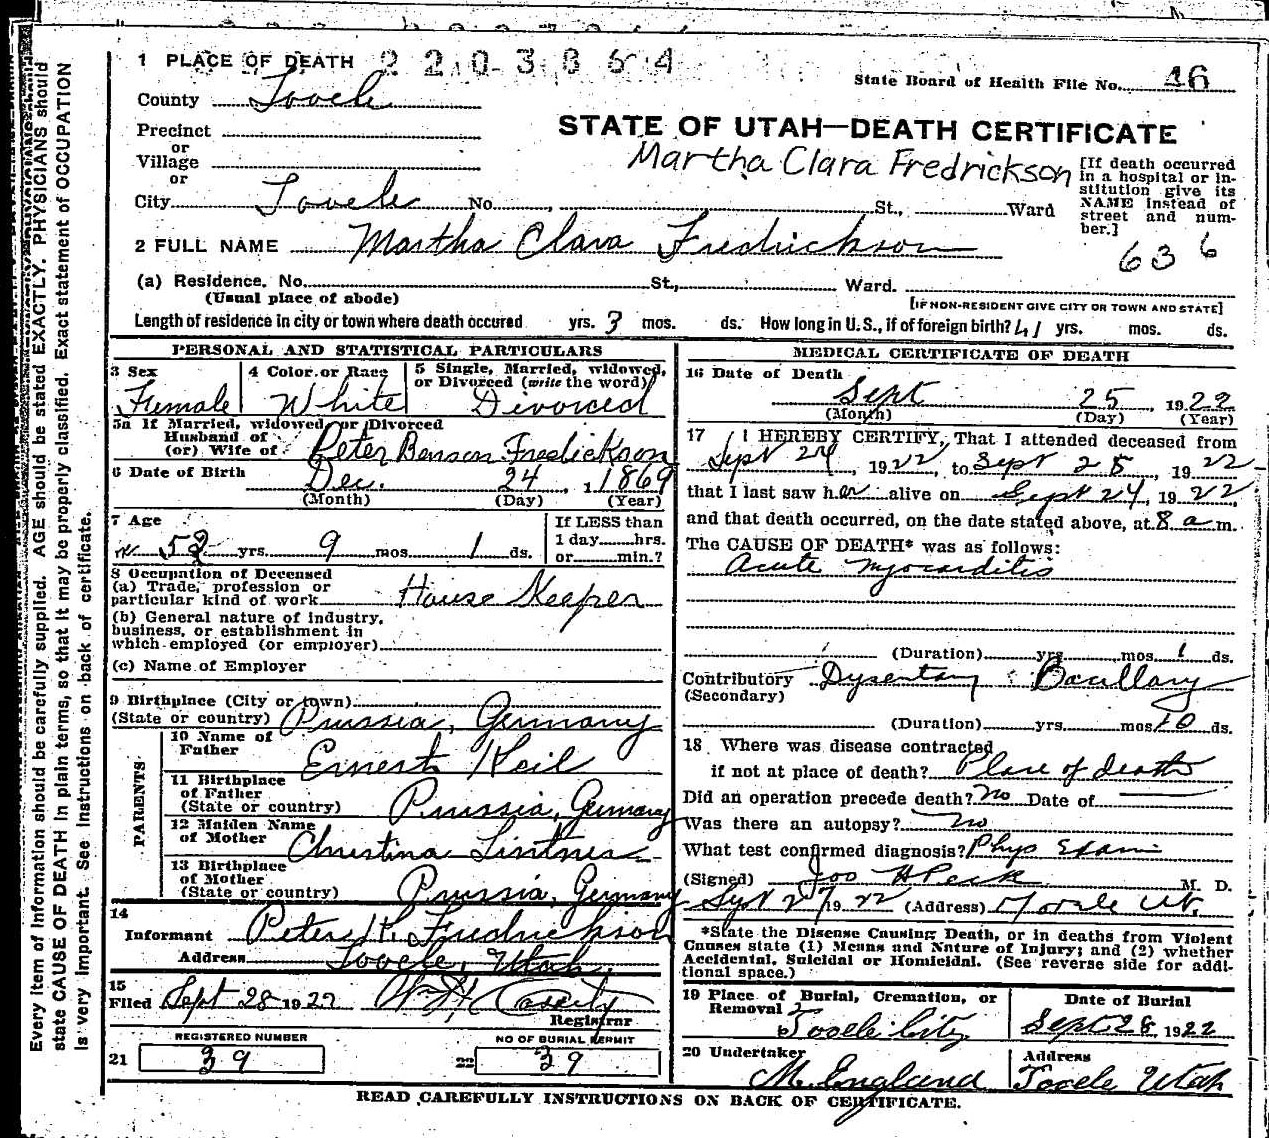 1 PLACE OF DEATH 2203864
State Board of Health File No. 46
County Tooele
STATE OF UTAH—DEATH CERTIFICATE
Precinct
or
Village
or
Martha Clara Fredrickson
[If death occurred in a hospital or institution give its NAME instead of street and number.]
City Tooele No. , St., Ward
2 FULL NAME Martha Clara Fredrickson
636
(a) Residence. No. St., Ward.
(Usual place of abode) [IF NON-RESIDENT GIVE CITY OR TOWN AND STATE]
Length of residence in city or town where death occured yrs. 3 mos. ds. How long in U.S., if of foreign birth? 41 yrs. mos. ds.
PERSONAL AND STATISTICAL PARTICULARS
3 Sex
Female
4 Color or Race
White
5 Single, Married, widowed, or Divorced (write the word)
Divorced
5a If Married, widowed, or Divorced
Husband of
(or) Wife of Peter Benson Fredickson
6 Date of Birth
Dec. 24, 1869
(Month) (Day) (Year)
7 Age
52 yrs. 9 mos. 1 ds.
If LESS than
1 day hrs.
or min.?
8 Occupation of Deceased
(a) Trade, profession or
particular kind of work House Keeper
(b) General nature of industry,
business, or establishment in
which employed (or employer)
(c) Name of Employer
9 Birthplace (City or town)
(State or country) Prussia, Germany
PARENTS
10 Name of
Father Ernest Keil
11 Birthplace
of Father
(State or country) Prussia, Germany
12 Maiden Name
of Mother Christina
13 Birthplace
of Mother
(State or country) Prussia, Germany
14
Informant Peter K. Fredrickson
Address Tooele, Utah,
15
Filed Sept 28 1922
Registrar
REGISTERED NUMBER
21 39
NO OF BURIAL PERMIT
22 39
MEDICAL CERTIFICATE OF DEATH
16 Date of Death
Sept 25, 1922
(Month) (Day) (Year)
17 I HEREBY CERTIFY, That I attended deceased from
Sept 24, 1922, to Sept 25, 1922
that I last saw her alive on Sept 24, 1922
and that death occurred, on the date stated above, at 8 a m.
The CAUSE OF DEATH* was as follows:
Acute myocarditis
(Duration) yrs mos 1 ds.
Contributory Dysentary Bacillary
(Secondary)
(Duration) yrs. mos 10 ds.
18 Where was disease contracted
if not at place of death? Place of death
Did an operation precede death? No Date of
Was there an autopsy? No
What test confirmed diagnosis? Phys Exam
(Signed) Jos H Peck M. D.
Sept 27 1922 (Address) Tooele Ut.
*State the Disease Causing Death, or in deaths from Violent
Causes state (1) Means and Nature of Injury; and (2) whether
Accidental, Suicidal or Homicidal. (See reverse side for addi-
tional space.)
19 Place of Burial, Cremation, or
Removal
Tooele City
Date of Burial
Sept 28, 1922
20 Undertaker
M. England
Address
Tooele Utah
READ CAREFULLY INSTRUCTIONS ON BACK OF CERTIFICATE.
Every item of information should be carefully supplied. AGE should be stated EXACTLY. PHYSICIANS should
state CAUSE OF DEATH in plain terms, so that it may be properly classified. Exact statement of OCCUPATION
is very important. See instructions on back of certificate.